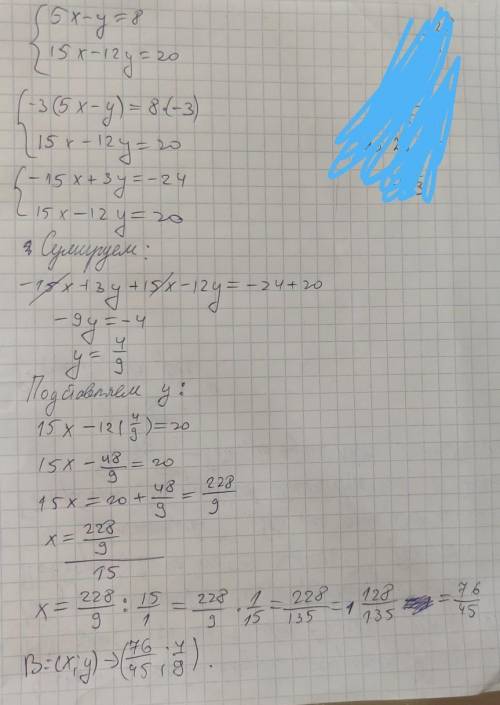 5x-y=8
15x-12y=20
-3(5x-y)=8·(-3)
15x-12y=20
-15x+3y=-24
15x-12y=20
Сумируем:
-15x+3y+15x-12y=-24+20
-9y=-4
y=4/9
Подставляем y:
15x-12(4/9)=20
15x-48/9=20
15x=20+48/9=228/9
x=228/9/15
x=228/9:15/1=228/9·1/15=228/135=1 128/135=76/45
В=(x;y)→(76/45;4/9).